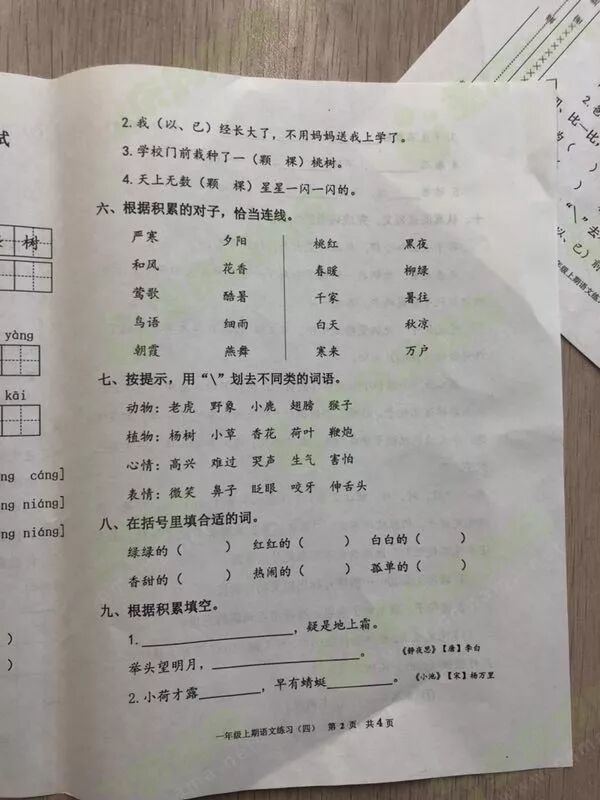 2.我（以、已）经长大了，不用妈妈送我上学了。
3.学校门前栽种了一（颗 棵）桃树。
4.天上无数（颗 棵）星星一闪一闪的。
六、根据积累的对子，恰当连线。
严寒 夕阳 桃红 黑夜
和风 花香 春暖 柳绿
莺歌 酷暑 千家 暑往
鸟语 细雨 白天 秋凉
朝霞 燕舞 寒来 万户
七、按提示，用“\”划去不同类的词语。
动物：老虎 野象 小鹿 翅膀 猴子
植物：杨树 小草 香花 荷叶 鞭炮
心情：高兴 难过 哭声 生气 害怕
表情：微笑 鼻子 眨眼 咬牙 伸舌头
八、在括号里填合适的词。
绿绿的（ ） 红红的（ ） 白白的（ ）
香甜的（ ） 热闹的（ ） 孤单的（ ）
九、根据积累填空。
1.＿＿＿＿＿＿＿＿，疑是地上霜。
举头望明月，＿＿＿＿＿＿＿＿。 《静夜思》【唐】李白
2.小荷才露＿＿＿＿＿＿，早有蜻蜓＿＿＿＿。 《小池》【宋】杨万里
一年级上期语文练习（四） 第 2 页 共 4 页
试
树
yàng
kāi
cáng]
niáng]
niáng]
比一比，
（ ）
“\”去
以、已）前
年级上期语文练